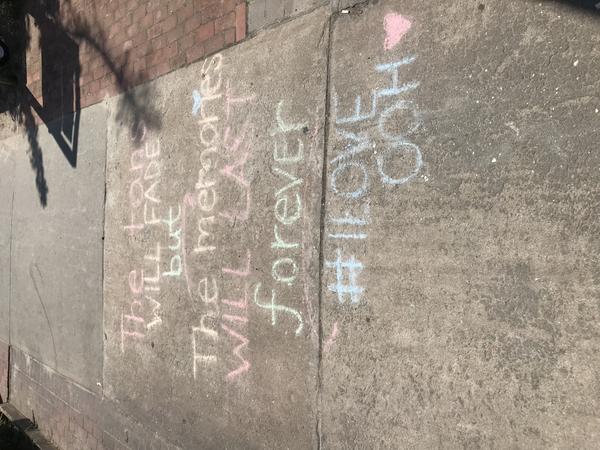 The Tans
WILL FADE
but
The memories
WILL LAST
forever
#ILOVE
OOH